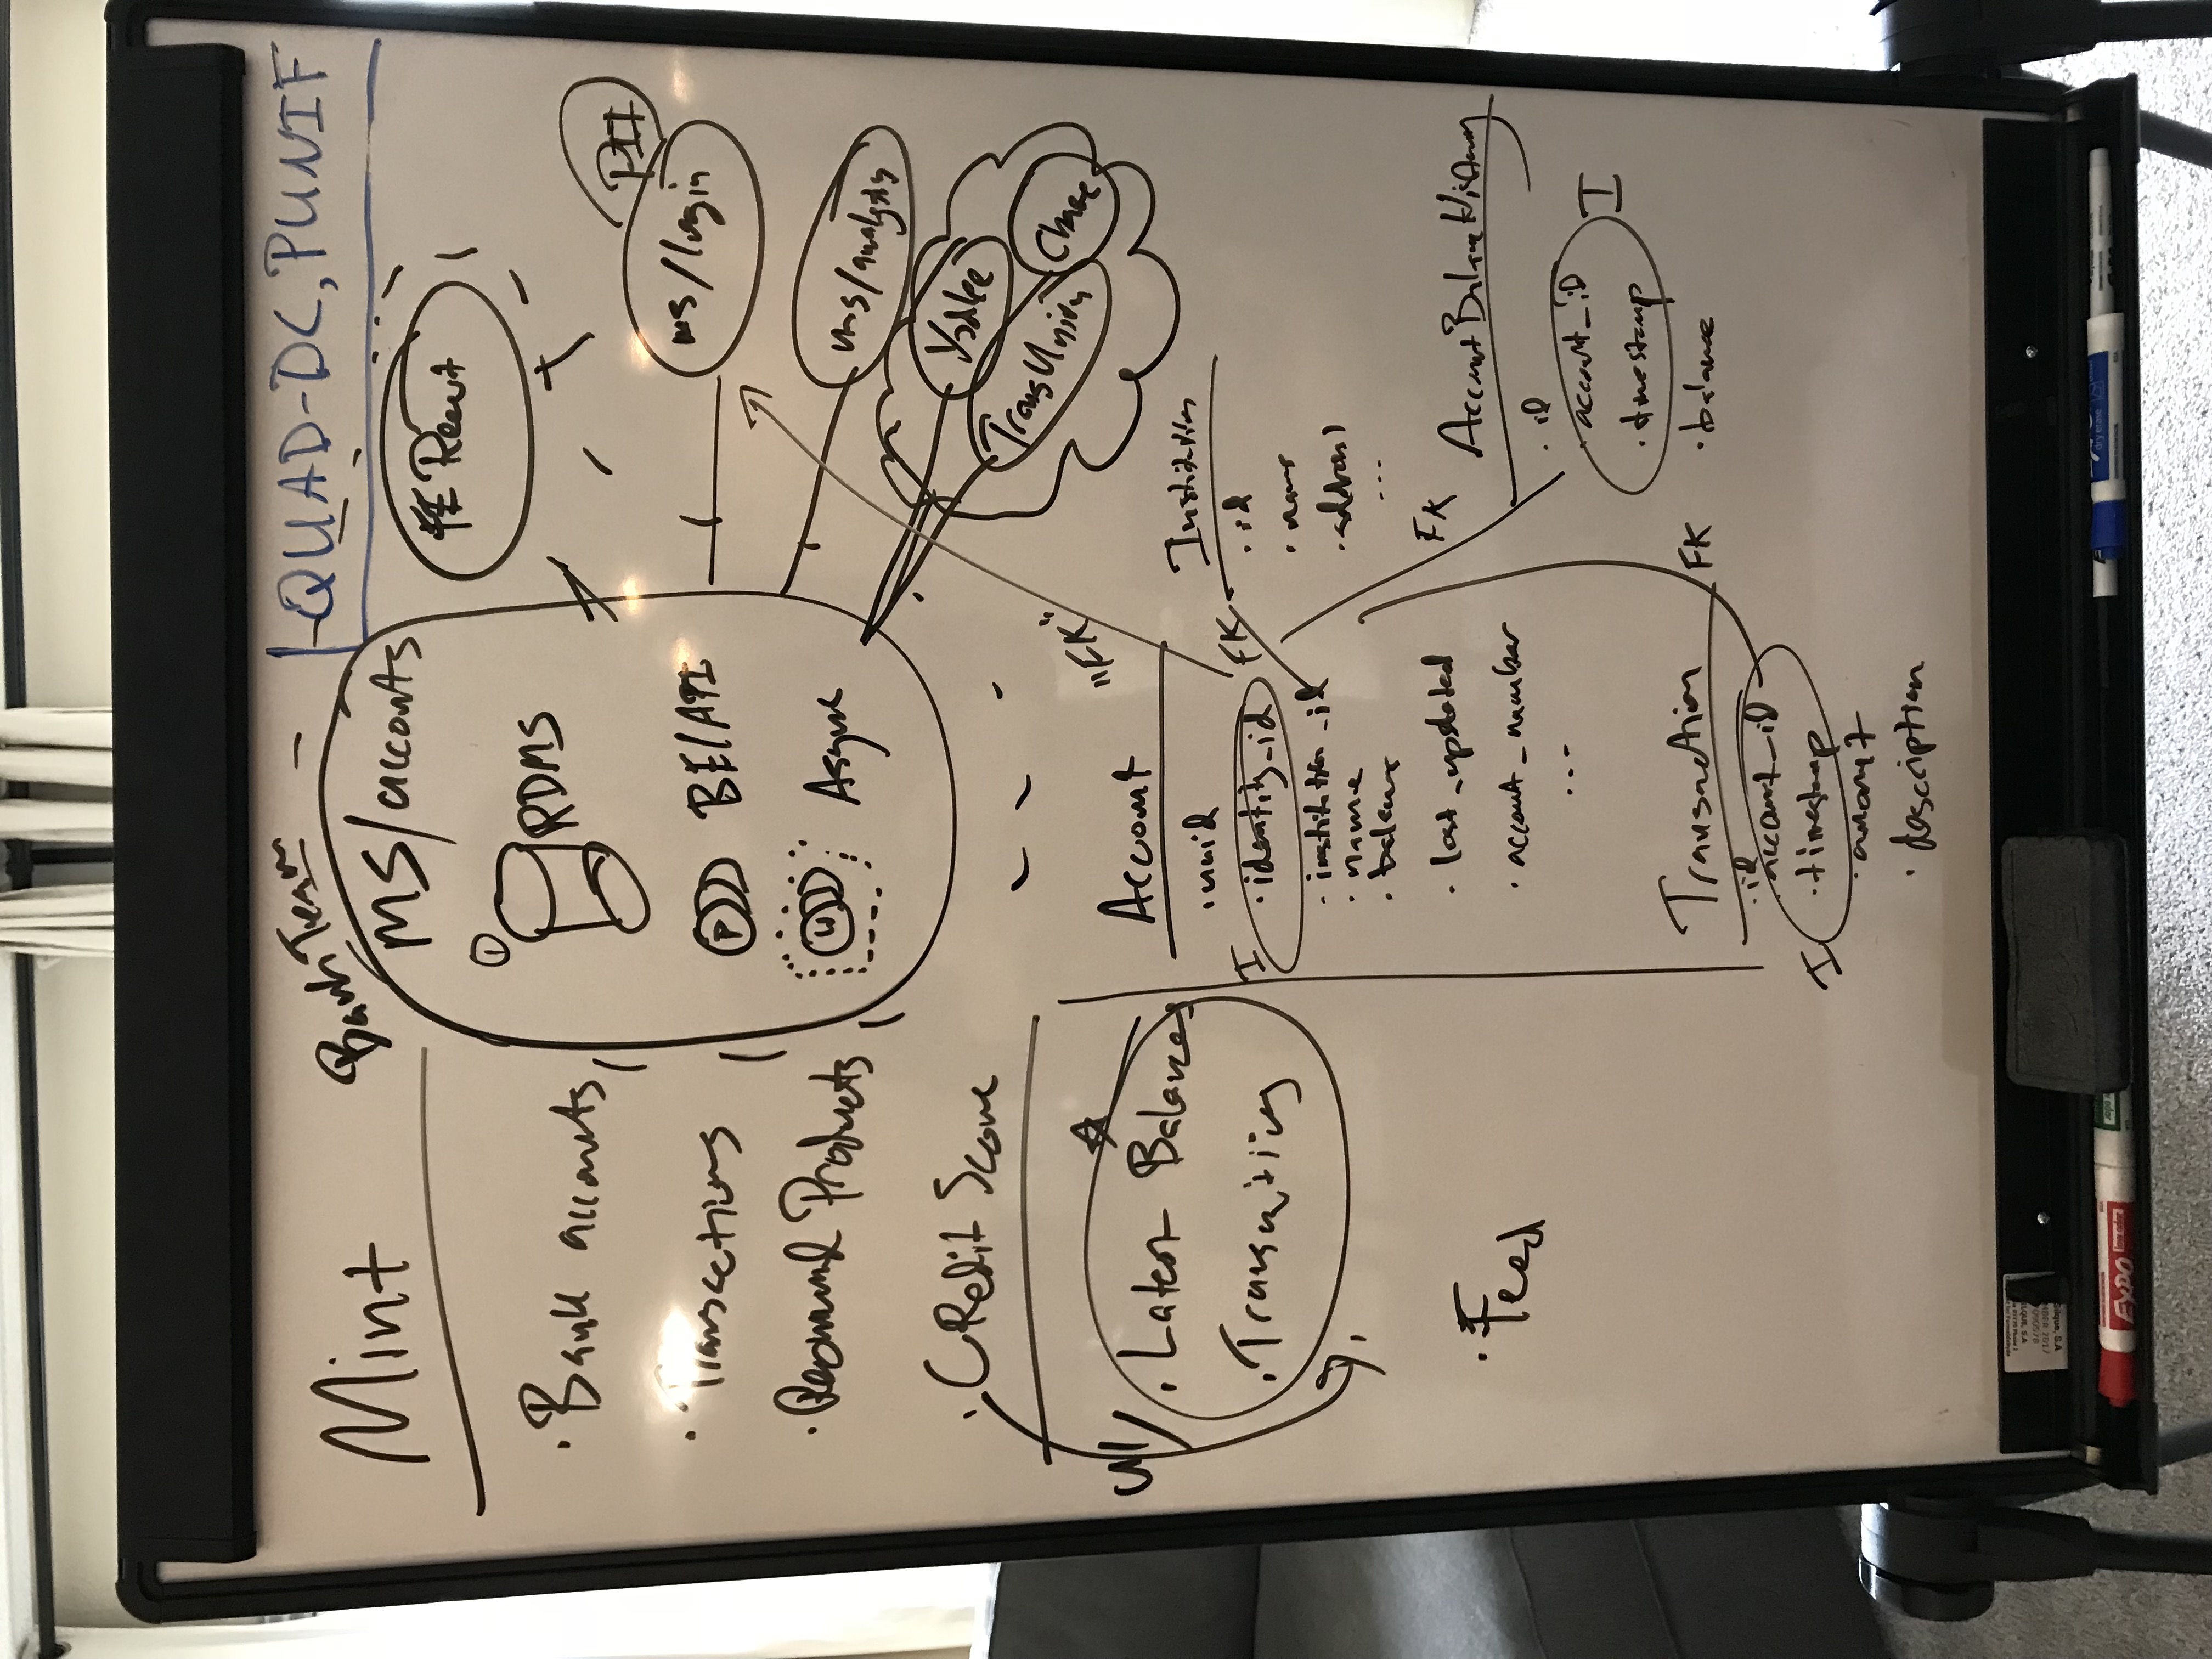 QUAD-DC, PUNIF
Mint
· Bank accounts
· Transactions
· Products
· CRedit Score
· Latest Balances
· Transactions
· Feed
Bank Team
MS/accounts
1
RDMS
P
BE/API
W
Async
FE React
PII
ms/login
ms/analysis
Yodlee
TransUnion
Chase
"FK"
Account
· uuid
I
· identity_id
· institution_id
· name
· balance
· last_updated
· account_number
...
FK
Institution
· id
· name
· address1
...
FK
AccountBalanceHistory
· id
· account_iD
· timestamp
I
· balance
Transaction
FK
· id
· account_iD
· timestamp
I
· amount
· description
EXPO
low odor
dry erase